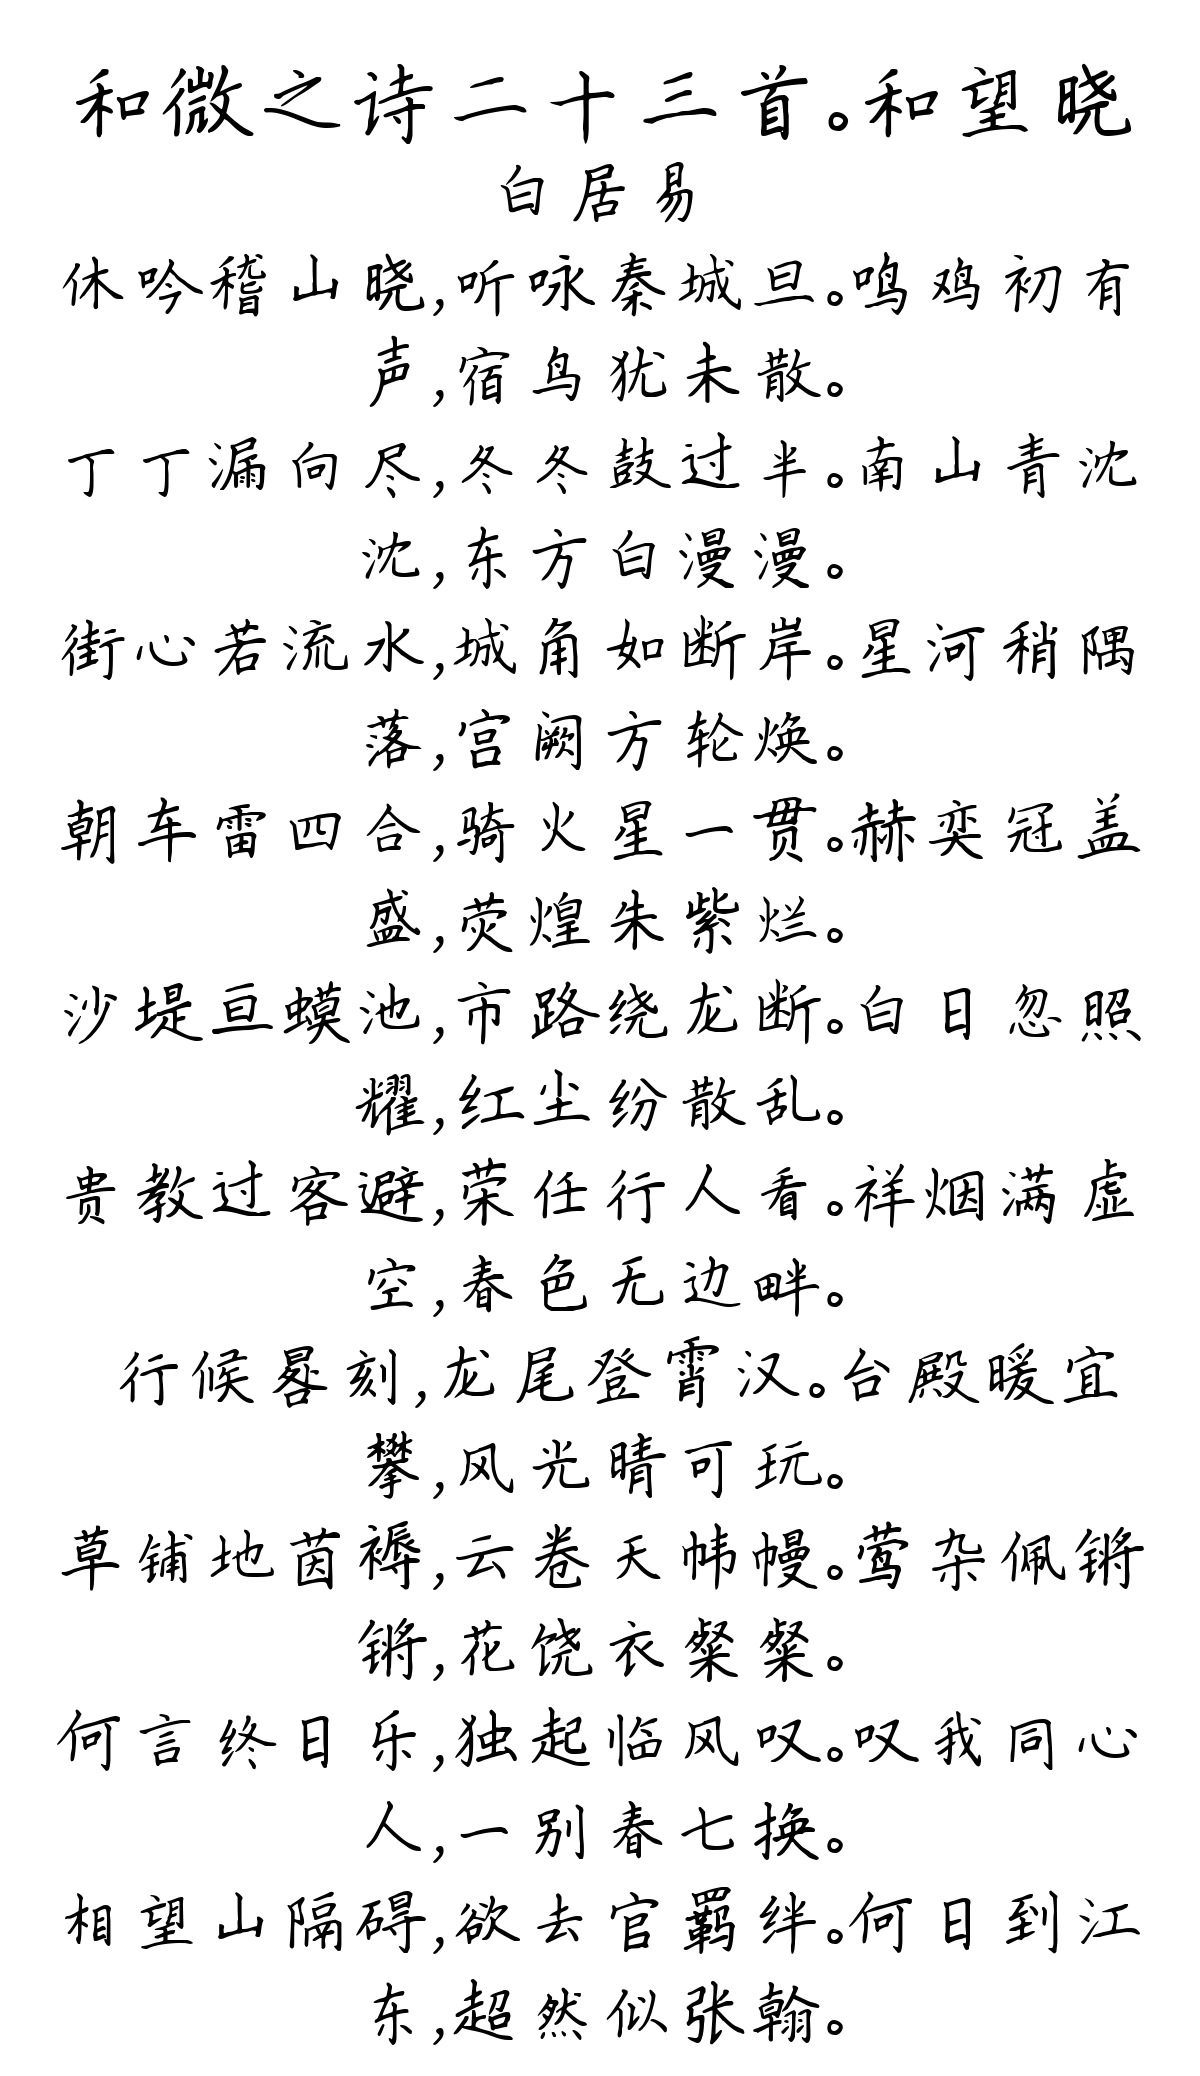 和微之诗二十三首。和望晓
白居易
休吟稽山晓,听咏秦城旦。鸣鸡初有
声,宿鸟犹未散。
丁丁漏向尽,冬冬鼓过半。南山青沈
沈,东方白漫漫。
街心若流水,城角如断岸。星河稍隅
落,宫阙方轮焕。
朝车雷四合,骑火星一贯。赫奕冠盖
盛,荧煌朱紫烂。
沙堤亘蟆池,市路绕龙断。白日忽照
耀,红尘纷散乱。
贵教过客避,荣任行人看。祥烟满虚
空,春色无边畔。
行候晷刻,龙尾登霄汉。台殿暖宜
攀,风光晴可玩。
草铺地茵褥,云卷天帏幔。莺杂佩锵
锵,花饶衣粲粲。
何言终日乐,独起临风叹。叹我同心
人,一别春七换。
相望山隔碍,欲去官羁绊。何日到江
东,超然似张翰。